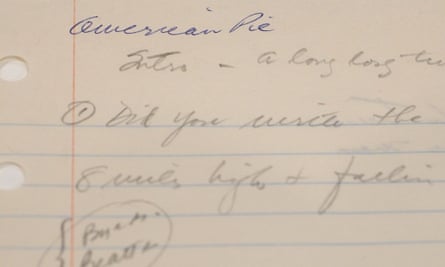 American Pie
Intro – a long long
① Did you write the
8 miles high + fallin
Byrds.
Beatles